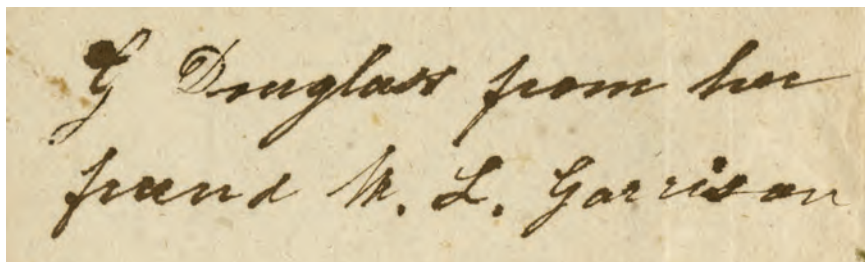 G Douglass from her
friend W. L. Garrison